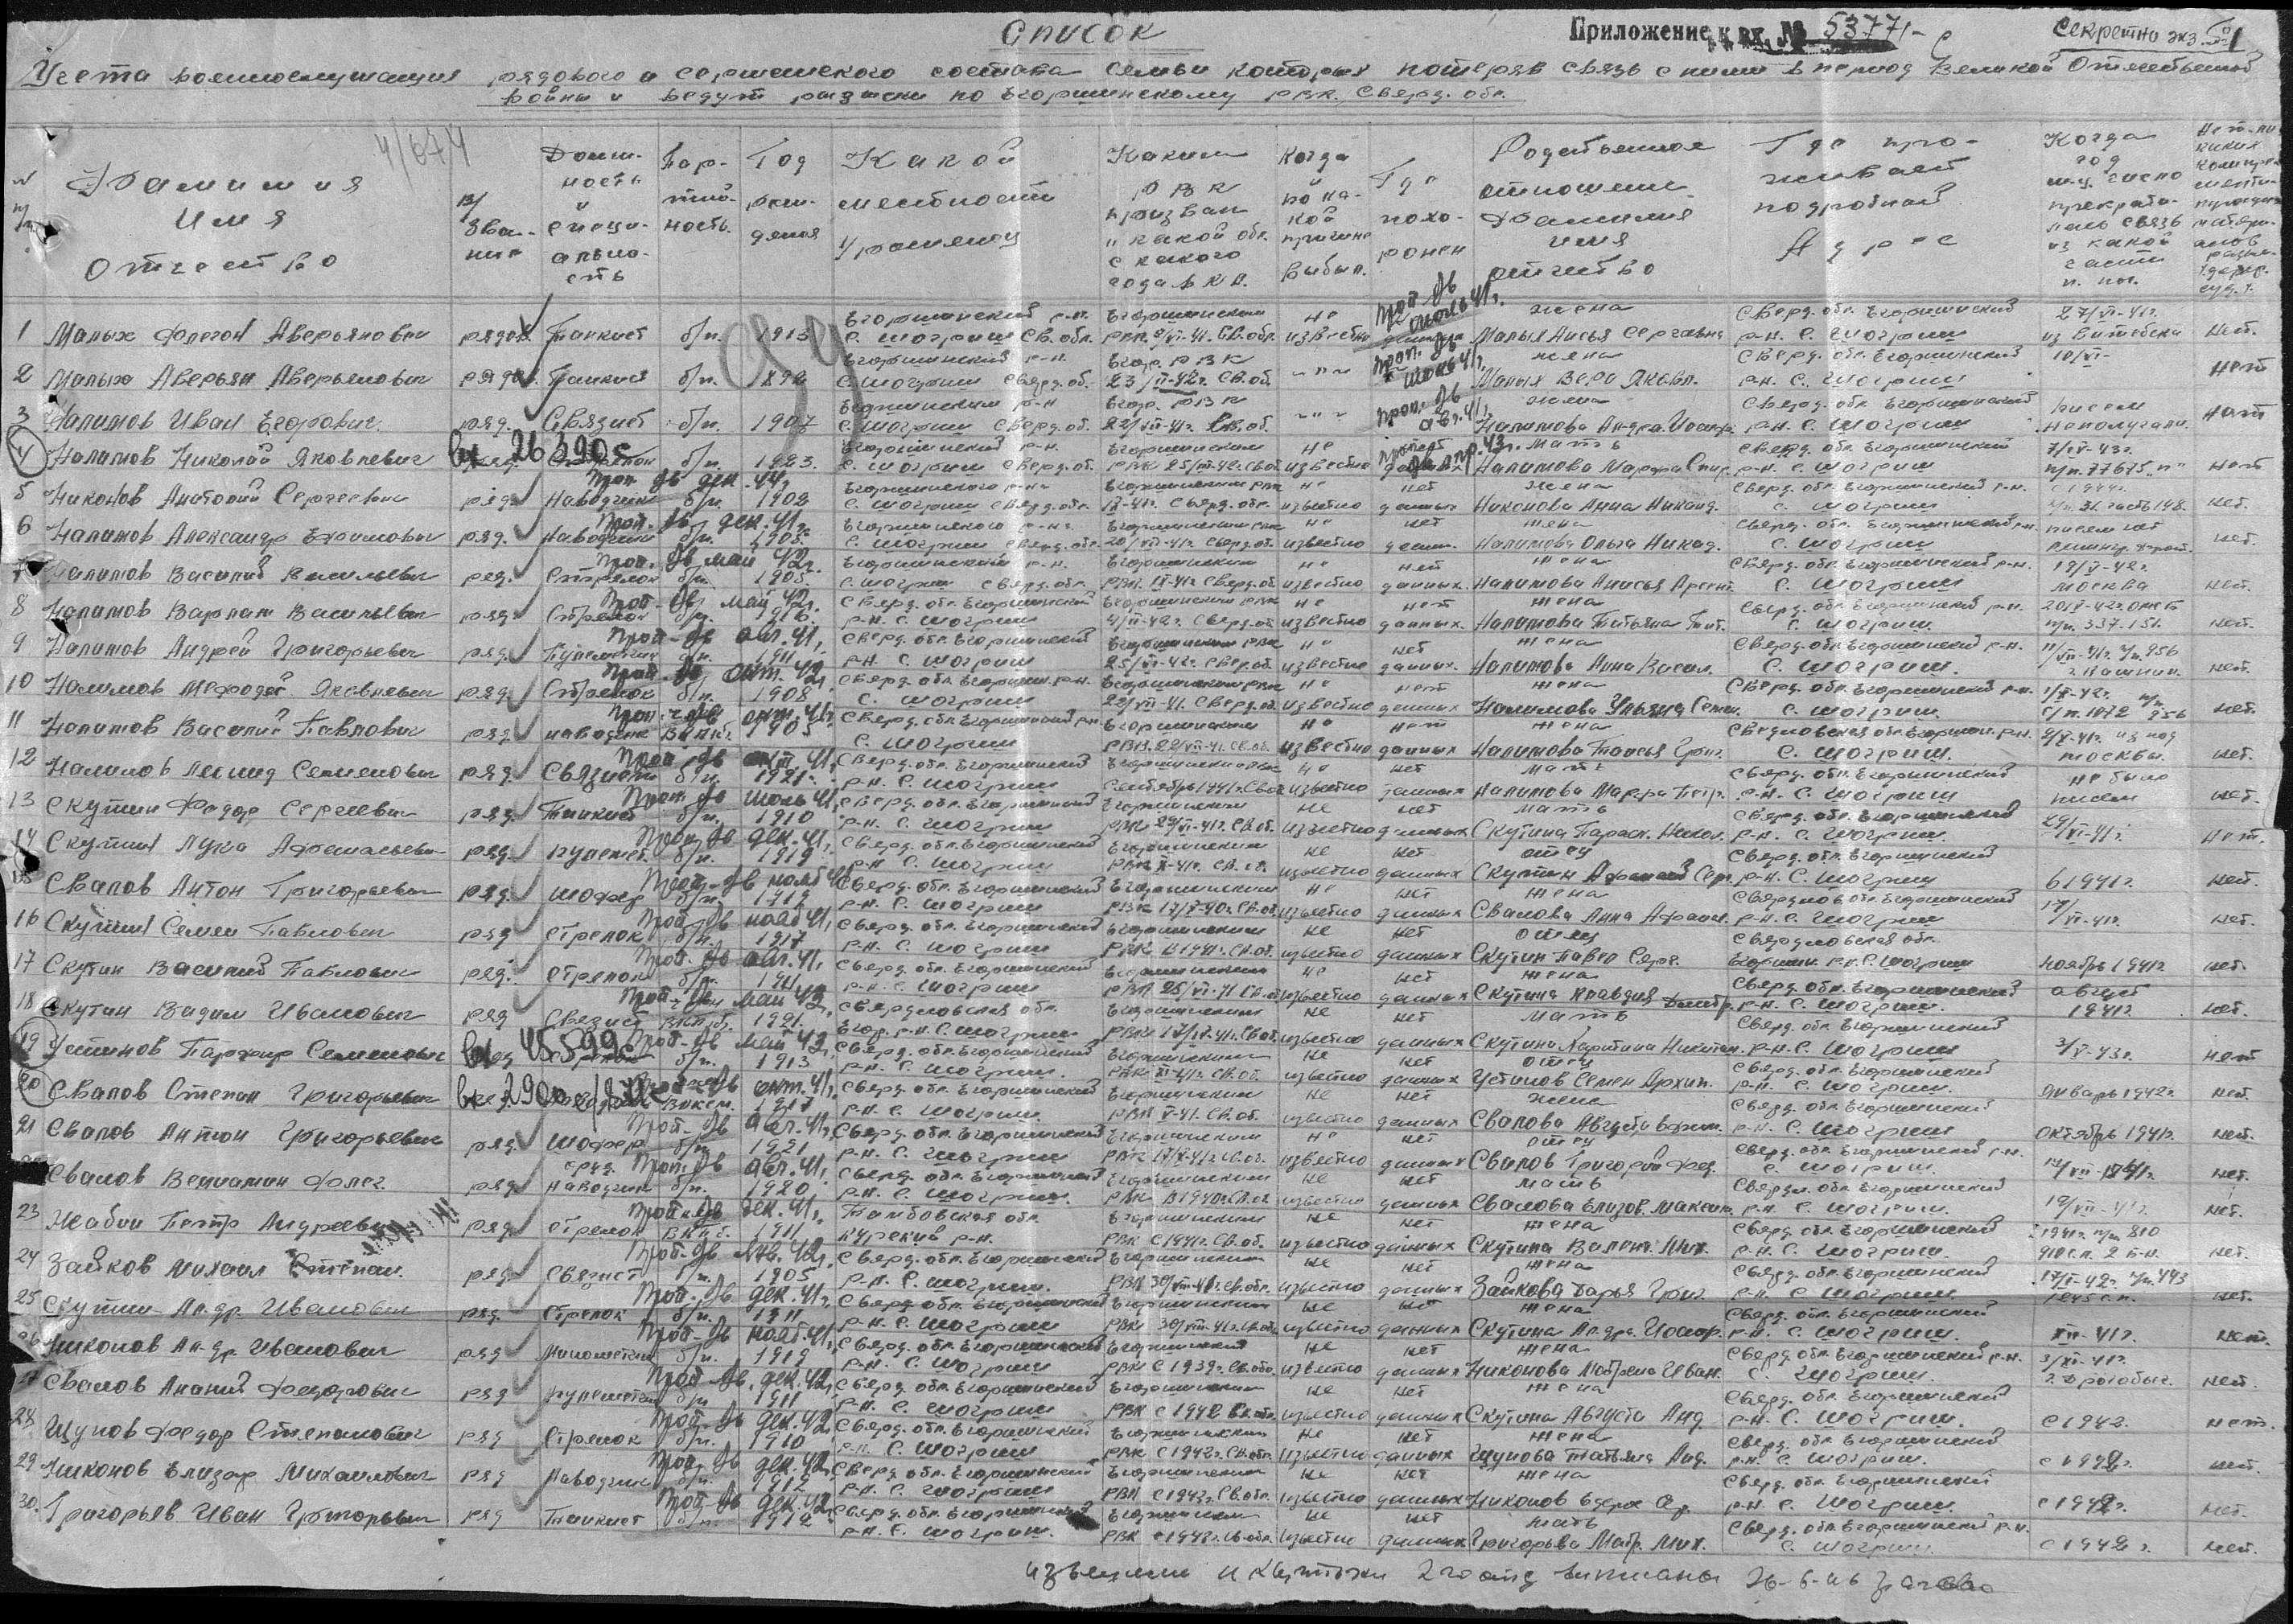 Список
Приложение к вх. № 53771-с
Секретно экз. № 1
Учета военнослужащих рядового и сержантского состава семьи которых потеряв связь с ними в период Великой Отечественной
войны и ведут розыски по Егоршинскому РВК, Сверд. обл.
4/674
№ п/п Фамилия Имя Отчество
В/звание
Должность и специальность
Партийность
Год рождения
Какой местности уроженец
Каким РВК призван и какой обл. с какого года в КА
Когда и по какой причине выбыл
Где похоронен
Родственное отношение фамилия имя отчество
Где проживает подробный Адрес
Когда год м-ц число прекратилась связь из какой части п. поч.
1 Малых Флегон Аверьянович рядов. Танкист б/п. 1913 Егоршинский р-н. с. Шогриш Св. обл. Егоршинским РВК /VI-41. Св. обл. не известно проп. б/в июль 41г. жена Малых Анисья Сергеевна Сверд. обл. Егоршинский р-н. с. Шогриш 27/VI-41г. из Витебска нет.
2 Малых Аверьян Аверьянович рядов. Танкист б/п. 1892 Егоршинский р-н. с. Шогриш Сверд. об. Егор. РВК 23/II-42г. Св. об. -"- проп. б/в июнь 41г. жена Малых Вера Яковл. Сверд. обл. Егоршинский р-н. с. Шогриш 10/VI- нет
3 Налимов Иван Егорович ряд. Связист б/п. 1907 Егоршинский р-н с. Шогриш Сверд. об. Егор. РВК 22/VII-41г. Св. об. -"- проп. б/в авг. 41г. жена Налимова Ал-дра Иосиф. Сверд. обл. Егоршинский р-н. с. Шогриш писем не получали нет
4 Налимов Николай Яковлевич вх 26390с ряд. Стрелок б/п. 1923. Егоршинский р-н. с. Шогриш Сверд. об. Егоршинским РВК 25/III-42г. Св. об. не известно проп. б/в апр. 43г. мать Налимова Марфа Спир. Сверд. обл. Егоршинский р-н. с. Шогриш 7/IV-43г. п/п. 77675 "п" нет
5 Никонов Анатолий Сергеевич ряд. Наводчик проп. б/в дек. 44г. б/п. 1902 Егоршинского р-на с. Шогриш Сверд. обл. Егоршинским РВК IX-41г. Сверд. обл. не известно нет данных жена Никонова Анна Никанд. Сверд. обл. Егоршинский р-н. с. Шогриш с 1944г. нет.
6 Налимов Александр Ефимович ряд. Наводчик проп. б/в дек. 41г. б/п. 1905. Егоршинского р-на с. Шогриш Сверд. обл. Егоршинским РВК 20/VII-41г. Сверд. об. не известно нет данн. жена Налимова Ольга Никад. Сверд. обл. Егоршинский р-н. с. Шогриш писем нет Ленингр. фронт. нет.
7 Налимов Василий Васильевич ряд. Стрелок проп. б/в май 42г. б/п. 1905. Егоршинский р-н. с. Шогриш Сверд. обл. Егоршинским РВК IX-41г. Сверд. об. не известно нет данных жена Налимова Анисья Арсент. Сверд. обл. Егоршинский р-н. с. Шогриш 19/V-42г. Москва нет.
8 Налимов Варлам Васильевич ряд. Стрелок проп. б/в май 42г. б/п. 1916. Сверд. обл. Егоршинский р-н. с. Шогриш Егоршинским РВК 4/II-42г. Сверд. об. не известно нет данных жена Налимова Татьяна Тит. Сверд. обл. Егоршинский р-н. с. Шогриш. п/п. 337-151. нет.
9 Налимов Андрей Григорьевич ряд. Пулеметчик проп. б/в авг. 41г. б/п. 1911 Сверд. обл. Егоршинский р-н. с. Шогриш Егоршинским РВК 25/VI-41г. Св. об. не известно нет данных. жена Налимова Анна Васил. Сверд. обл. Егоршинский р-н. с. Шогриш. /VII-41г. п/п. 956 нет.
10 Налимов Мефодий Яковлевич ряд. Стрелок проп. б/в окт. 42г. б/п. 1908 Сверд. обл. Егоршин. р-н. с. Шогриш Егоршинским РВК 22/VII-41. Сверд. об. не известно нет данных жена Налимова Ульяна Семен. Сверд. обл. Егоршинский р-н. с. Шогриш. 1/X-42г. нет.
11 Налимов Василий Павлович ряд. наводчик проп. б/в окт. 41г. ВКП/б. 1905 Сверд. обл. Егоршинский р-н. с. Шогриш Егоршинским РВК 22/VII-41. Св. об. не известно нет данных жена Налимова Таисья Григ. Свердловская обл. Егоршин. р-н. с. Шогриш. 9/X-41г. из под Москвы. нет.
12 Налимов Леонид Семенович ряд. Связист проп. б/в окт. 41г. б/п. 1921. Сверд. обл. Егоршинский р-н. с. Шогриш Егоршинским РВК Сентябрь 1941г. Св. об. не известно нет данных мать Налимова Марфа Петр. Сверд. обл. Егоршинский р-н. с. Шогриш не было писем нет.
13 Скутин Федор Сергеевич ряд. Танкист проп. б/в июль 41г. б/п. 1910 Сверд. обл. Егоршинский р-н. с. Шогриш Егоршинским РВК 29/VI-41г. Св. об. не известно нет данных мать Скутина Параск. Никол. Сверд. обл. Егоршинский р-н. с. Шогриш. 29/VI-41г. нет.
14 Скутин Лука Афанасьевич ряд. пулемет. проп. б/в дек. 41г. б/п. 1919 Сверд. обл. Егоршинский р-н. с. Шогриш Егоршинским РВК X-41г. Св. об. не известно нет данных отец Скутин Афанасий Сер. Сверд. обл. Егоршинский р-н. с. Шогриш в 1941г. нет.
15 Свалов Антон Григорьевич ряд. шофер проп. б/в нояб 41г. б/п. 1919 Сверд. обл. Егоршинский р-н. с. Шогриш Егоршинским РВК 17/X-40г. Св. об. не известно нет данных жена Свалова Анна Афанас. Свердлов. обл. Егоршинский р-н. с. Шогриш /VI-41г. нет.
16 Скутин Семен Павлович ряд. Стрелок проп. б/в нояб 41г. б/п. 1917 Сверд. обл. Егоршинский р-н. с. Шогриш Егоршинским РВК в 1941г. Св. об. не известно нет данных отец Скутин Павел Серг. Свердловская обл. Егоршин. р-н. с. Шогриш ноябрь 1941г. нет.
17 Скутин Василий Павлович ряд. Стрелок проп. б/в авг. 41г. б/п. 1911 Сверд. обл. Егоршинский р-н. с. Шогриш Егоршинским РВК 25/VI-41 Св. об. не известно нет данных жена Скутина Клавдия Дмитр. Сверд. обл. Егоршинский р-н. с. Шогриш. август 1941г. нет.
18 Скутин Вадим Иванович ряд Связист проп. б/в май 42г. ВКП/б. 1921. Свердловская обл. Егор. р-н. с. Шогриш Егоршинским РВК 17/IV-41г. Св. об. не известно нет данных мать Скутина Харитина Никитич. Сверд. обл. Егоршинский р-н. с. Шогриш 3/V-43г. нет
19 Устинов Парфир Семенович вх 45599с ряд. Стрелок проп. б/в май 43г. б/п. 1913 Сверд. обл. Егоршинский р-н. с. Шогриш. Егоршинским РВК XI-41г. Св. об. не известно нет данных отец Устинов Семен Архип. Сверд. обл. Егоршинский р-н. с. Шогриш. январь 1942г. нет.
20 Свалов Степан Григорьевич ряд. проп. б/в окт. 41г. 1917 Сверд. обл. Егоршинский р-н. с. Шогриш. Егоршинским РВК X-41. Св. об. не известно нет данных жена Свалова Августа Сверд. обл. Егоршинский р-н. с. Шогриш октябрь 1941г. нет.
21 Свалов Антон Григорьевич ряд. шофер проп. б/в авг. 41г. б/п 1921 Сверд. обл. Егоршинский р-н. с. Шогриш Егоршинским РВК 17/X-41г. Св. об. не известно нет данных отец Свалов Григорий Фед. Сверд. обл. Егоршинский р-н. с. Шогриш. /VII-1941г. нет.
Свалов Вениамин Флег. ряд. наводчик проп. б/в авг. 41г. б/п. 1920 Сверд. обл. Егоршинский р-н. с. Шогриш. Егоршинским РВК в 1940г. Св. об. не известно нет данных мать Свалова Елизов. Максим. Свердл. обл. Егоршинский р-н. с. Шогриш. 19/VII-41г. нет.
23 Жабин Петр Андреевич ряд. стрелок проп. б/в дек. 41г. ВКП/б. 1911 Тамбовская обл. р-н. Егоршинским РВК с 1941г. Св. об. не известно нет данных жена Скутина Валент. Мих. Сверд. обл. Егоршинский р-н. с. Шогриш. 1941г. п/п 810 910 с.п. 2 б-н. нет.
24 Зайков Михаил Степан. ряд Связист проп. б/в янв. 42г. б/п. 1905 Сверд. обл. Егоршинский р-н. с. Шогриш. Егоршинским РВК 30/VIII-41г. Св. обл. не известно нет данных жена Зайкова Дарья Григ. Сверд. обл. Егоршинский р-н. с. Шогриш 17/I-42г. п/п. 443 нет.
25 Скутин Ал-др. Иванович ряд. Стрелок проп. б/в дек. 41г. б/п. 1911 Сверд. обл. Егоршинский р-н. с. Шогриш Егоршинским РВК 30/VIII-41г. Св. об. не известно нет данных жена Скутина Ал-дра. Иосиф. Сверд. обл. Егоршинский р-н. с. Шогриш. XII-41г. нет.
26 Никонов Ал-др. Иванович ряд Минометчик проп. б/в нояб. 41г. б/п. 1919 Сверд. обл. Егоршинский р-н. с. Шогриш Егоршинский РВК с 1939г. Св. об. не известно нет данных жена Никонова Матрена Иван. Сверд. обл. Егоршинский р-н. с. Шогриш. 3/XI-41г. г. Дрогобыч. нет.
27 Свалов Ананий Федорович ряд Пулеметчик проп. б/в. дек. 42г. б/п 1911 Сверд. обл. Егоршинский р-н. с. Шогриш Егоршинским РВК с 1942 Св. об. не известно нет данных жена Скутина Августа Анд. Сверд. обл. Егоршинский р-н. с. Шогриш. с 1942. нет.
28 Щупов Федор Степанович ряд Стрелок проп. б/в дек. 42г. б/п. 1910 Сверд. обл. Егоршинский р-н. с. Шогриш Егоршинским РВК с 1942г. Св. обл. не известно нет данных жена Щупова Татьяна Анд. Сверд. обл. Егоршинский р-н. с. Шогриш. с 1942г. нет.
29 Никонов Елизар Михаилович ряд Наводчик проп. б/в дек. 42г. б/п. 1912 Сверд. обл. Егоршинский р-н. с. Шогриш Егоршинским РВК с 1942г. Св. обл. не известно нет данных жена Никонов Сверд. обл. Егоршинский р-н. с. Шогриш с 1942г. нет.
30. Григорьев Иван Григорьевич ряд Танкист проп. б/в дек. 42г. б/п 1912 Сверд. обл. Егоршинский р-н. с. Шогриш. Егоршинским РВК с 1942г. Св. обл. не известно нет данных мать Григорьва Матр. Мих. Сверд. обл. Егоршинский р-н. с. Шогриш. с 1942г. нет.
извещении и карточки 2го отд выписаны 26-6-46